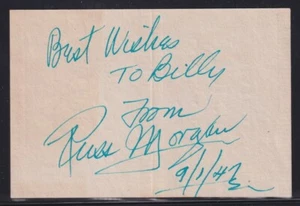 Best Wishes
To Billy
From
Russ Morgan
9/1/42